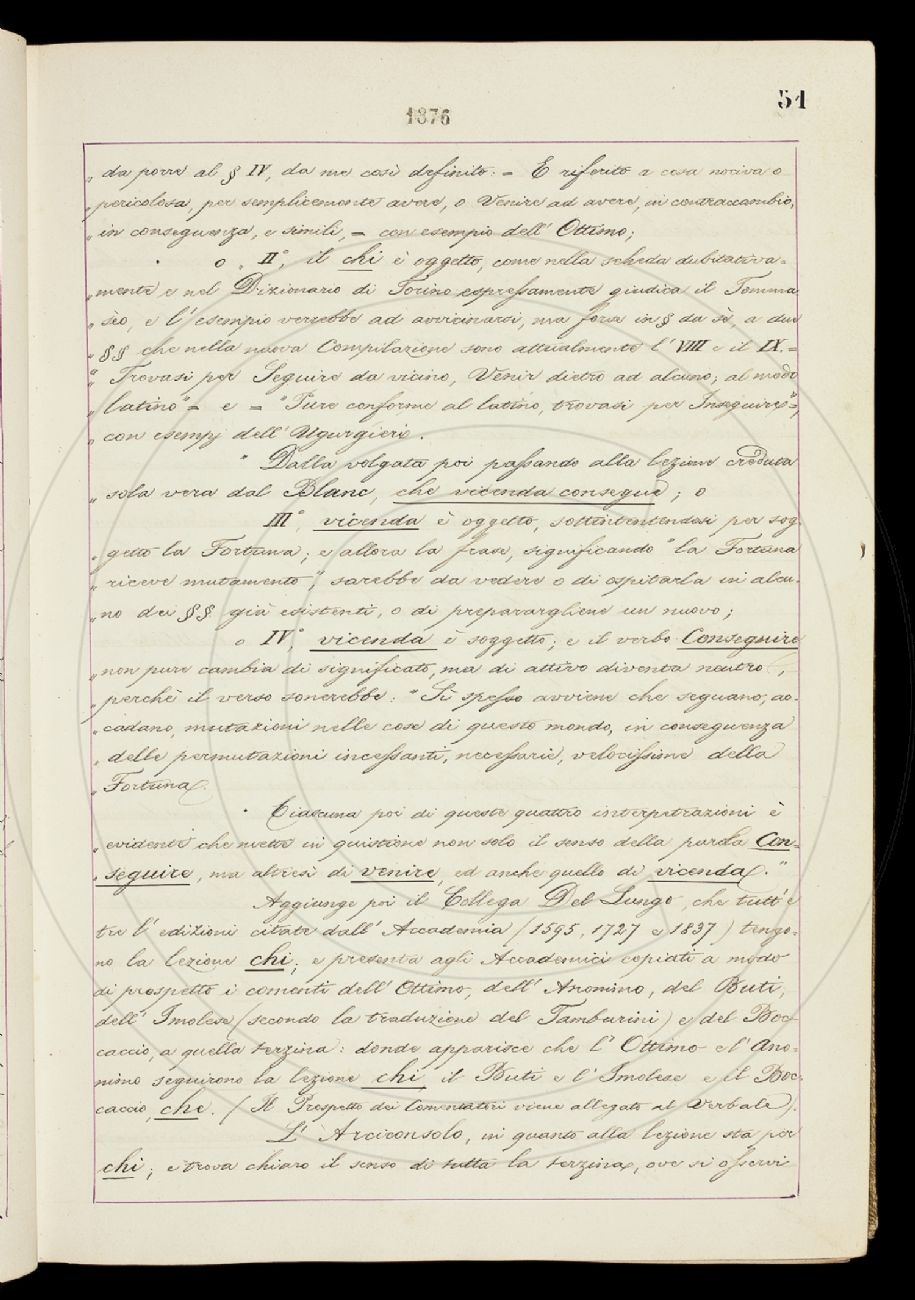 51
1876
„ da porre al § IV, da me così definito: = E riferito a cosa nociva o
„ pericolosa, per semplicemente avere, o Venire ad avere, in contraccambio,
„ in conseguenza, e simili, = con esempio dell' Ottimo;
o „ II°, il chi è oggetto, come nella scheda dubitativa=
„ mente e nel Dizionario di Torino espressamente giudica il Tomma
„ sèo, e l' esempio verrebbe ad avvicinarsi, ma forse in § da sè, a due
„ §§ che nella nuova Compilazione sono attualmente l' VIII e il IX. =
„ " Trovasi per Seguire da vicino, Venir dietro ad alcuno; al modo
„ latino" = e = "Pure conforme al latino, trovasi per Inseguire" =,
„ con esempj dell' Ugurgieri.
" Dalla volgata poi passando alla lezione creduta
„ sola vera dal Blanc, che vicenda consegue; o
III°, vicenda è oggetto, sottintendendosi per sog
„ getto la Fortuna; e allora la frase, significando " la Fortuna
„ riceve mutamento", sarebbe da vedere o di ospitarla in alcu-
„ no dei §§ già esistenti, o di preparargliene un nuovo;
o IV°, vicenda è soggetto; e il verbo Conseguire
„ non pure cambia di significato, ma di attivo diventa neutro;
„ perchè il verso sonerebbe: " Sì spesso avviene che seguano, ac-
„ cadano, mutazioni nelle cose di questo mondo, in conseguenza
„ delle permutazioni incessanti, necessarie, velocissime della
„ Fortuna.
" Ciascuna poi di queste quattro interpetrazioni è
„ evidente che mette in quistione non solo il senso della parola Con-
„ seguire, ma altresì di venire, ed anche quello di vicenda."
Aggiunge poi il Collega Del Lungo, che tutt' e
tre l' edizioni citate dall' Accademia (1595, 1727 e 1837) tengo-
no la lezione chi; e presenta agli Accademici copiati a modo
di prospetto i comenti dell' Ottimo, dell' Anonimo, del Buti,
dell' Imolese (secondo la traduzione del Tamburini) e del Boc-
caccio, a quella terzina: donde apparisce che l' Ottimo e l' Ano-
nimo seguirono la lezione chi, il Buti e l' Imolese e il Boc-
caccio, che. (Il Prospetto dei Comentatori viene allegato al Verbale).
L' Arciconsolo, in quanto alla lezione sta per
chi; e trova chiaro il senso di tutta la terzina, ove si osservi